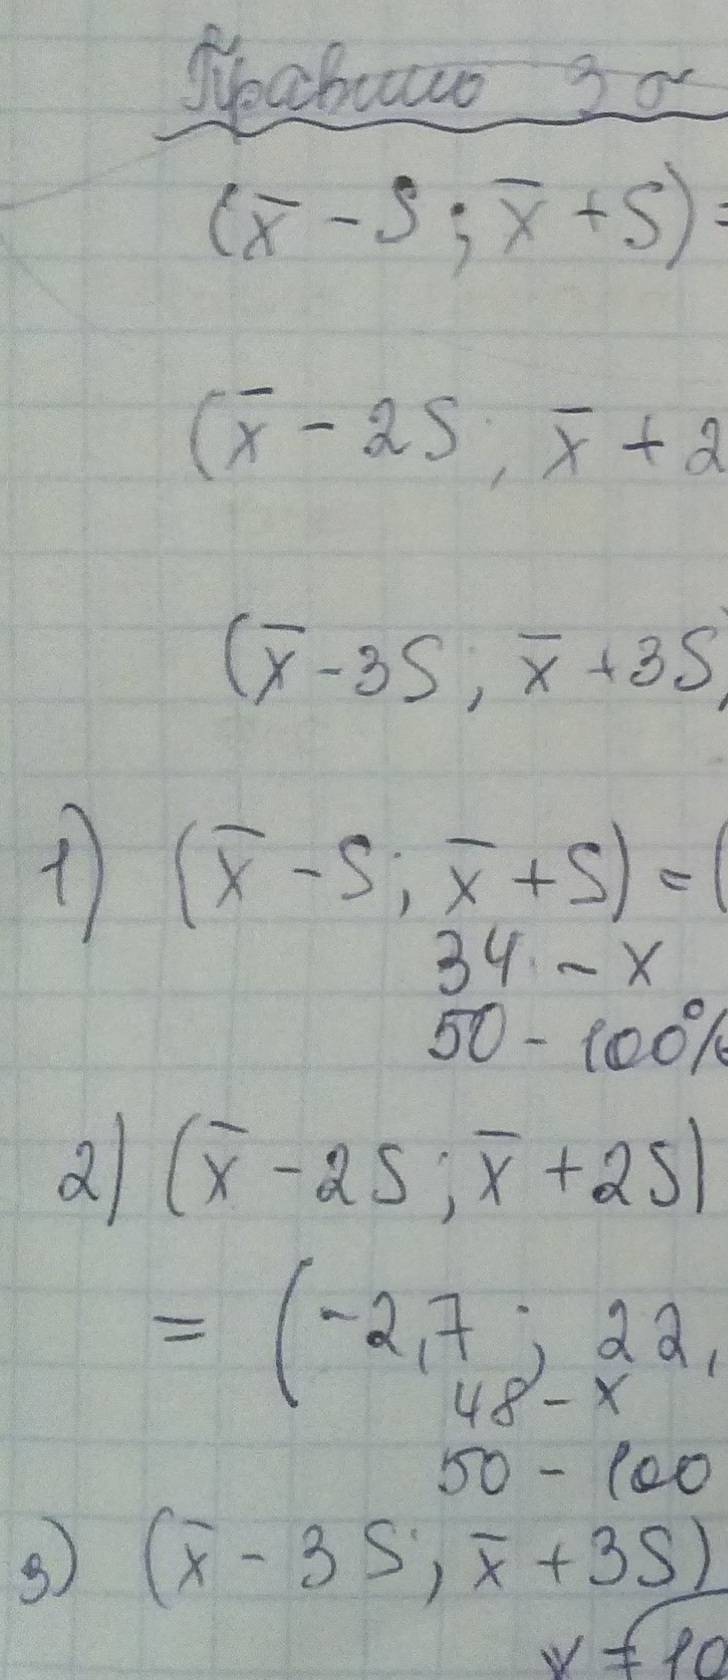 Правило 3σ
(x̅ - S; x̅ + S) =
(x̅ - 2S; x̅ + 2
(x̅ - 3S; x̅ + 3S)
1) (x̅ - S; x̅ + S) = (
34 - x
50 - 100%
2) (x̅ - 2S; x̅ + 2S)
= (-2,7; 22,
48 - x
50 - 100
3) (x̅ - 3S; x̅ + 3S)
x = 10